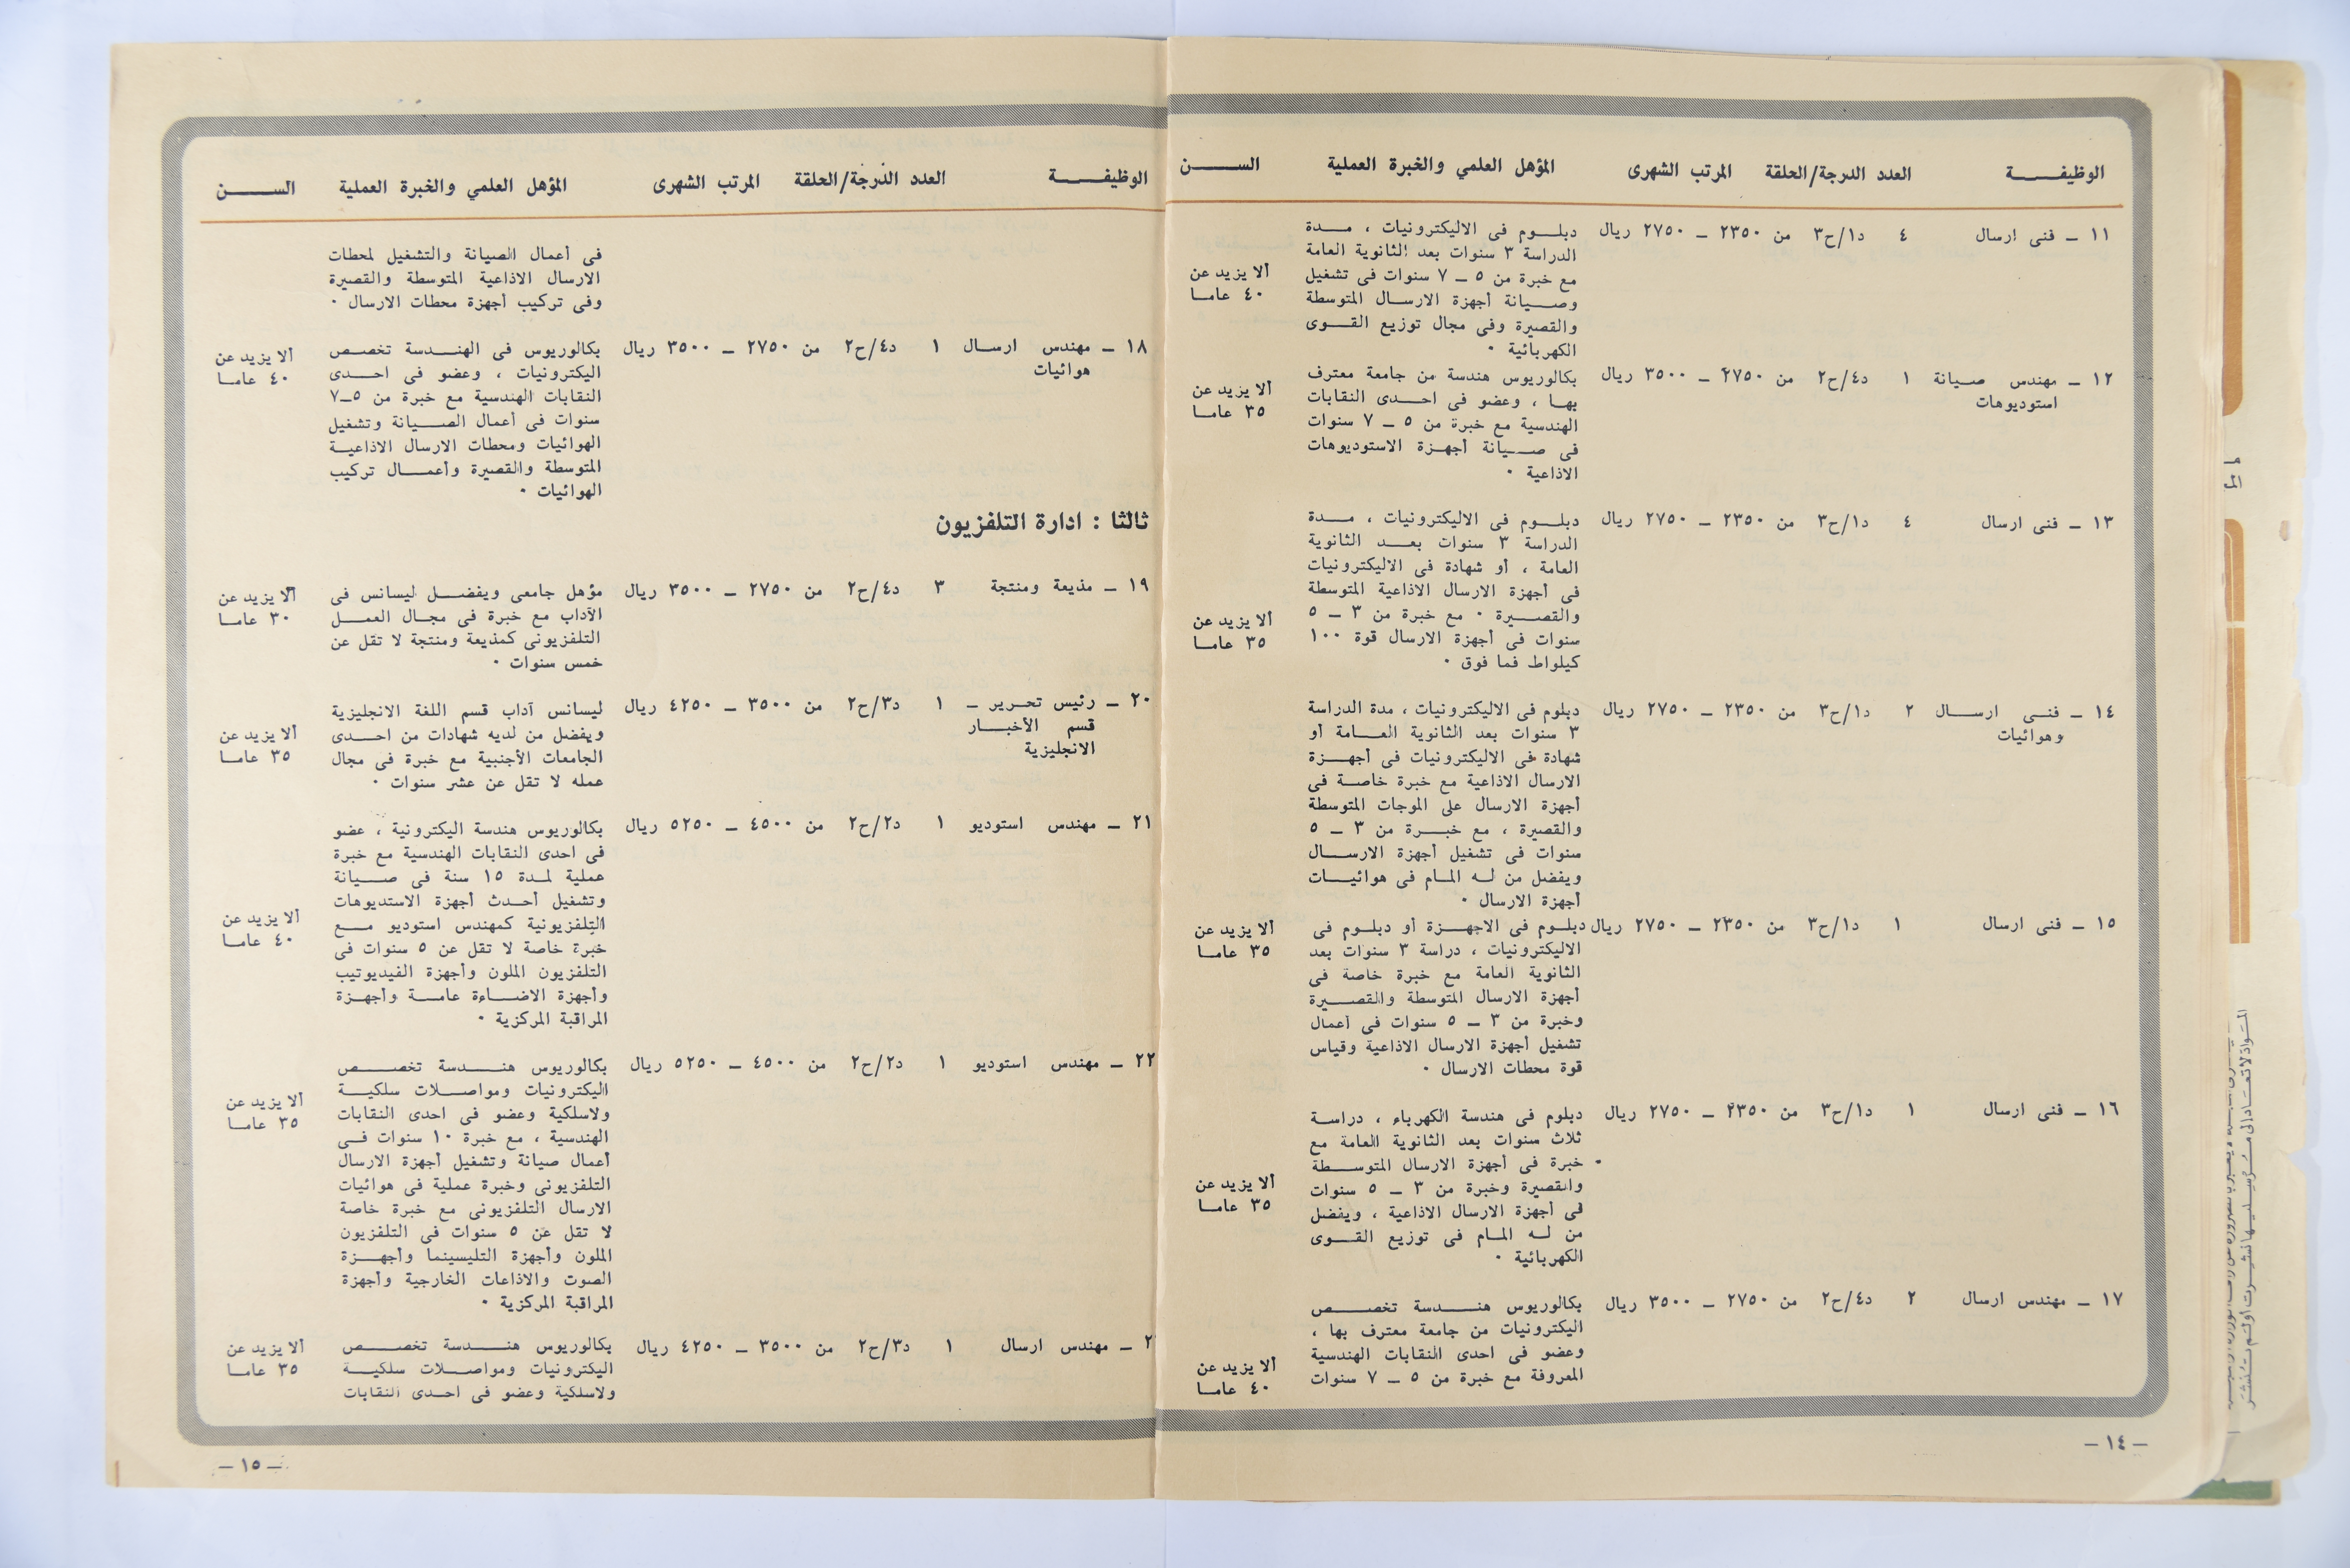 الوظيفة العدد الدرجة/الحلقة المرتب الشهرى المؤهل العلمي والخبرة العملية السن
١١ – فنى ارسال ٤ د١/ح٣ من ٢٣٥٠ – ٢٧٥٠ ريال دبلوم فى الاليكترونيات ، مدة
الدراسة ٣ سنوات بعد الثانوية العامة
مع خبرة من ٥ – ٧ سنوات فى تشغيل ألا يزيد عن
وصيانة أجهزة الارسال المتوسطة ٤٠ عاما
والقصيرة وفى مجال توزيع القوى
الكهربائية .
١٢ – مهندس صيانة ١ د٤/ح٢ من ٢٧٥٠ – ٣٥٠٠ ريال بكالوريوس هندسة من جامعة معترف ألا يزيد عن
استوديوهات بها ، وعضو فى احدى النقابات ٣٥ عاما
الهندسية مع خبرة من ٥ – ٧ سنوات
فى صيانة أجهزة الاستوديوهات
الاذاعية .
١٣ – فنى ارسال ٤ د١/ح٣ من ٢٣٥٠ – ٢٧٥٠ ريال دبلوم فى الاليكترونيات ، مدة
الدراسة ٣ سنوات بعد الثانوية
العامة ، أو شهادة فى الاليكترونيات
فى أجهزة الارسال الاذاعية المتوسطة
والقصيرة . مع خبرة من ٣ – ٥ ألا يزيد عن
سنوات فى أجهزة الارسال قوة ١٠٠ ٣٥ عاما
كيلواط فما فوق .
١٤ – فنى ارسال ٢ د١/ح٣ من ٢٣٥٠ – ٢٧٥٠ ريال دبلوم فى الاليكترونيات ، مدة الدراسة
وهوائيات ٣ سنوات بعد الثانوية العامة أو
شهادة فى الاليكترونيات فى أجهزة
الارسال الاذاعية مع خبرة خاصة فى
أجهزة الارسال على الموجات المتوسطة
والقصيرة ، مع خبرة من ٣ – ٥
سنوات فى تشغيل أجهزة الارسال
ويفضل من له المام فى هوائيات
أجهزة الارسال .
١٥ – فنى ارسال ١ د١/ح٣ من ٢٣٥٠ – ٢٧٥٠ ريال دبلوم فى الاجهزة أو دبلوم فى ألا يزيد عن
الاليكترونيات ، دراسة ٣ سنوات بعد ٣٥ عاما
الثانوية العامة مع خبرة خاصة فى
أجهزة الارسال المتوسطة والقصيرة
وخبرة من ٣ – ٥ سنوات فى أعمال
تشغيل أجهزة الارسال الاذاعية وقياس
قوة محطات الارسال .
١٦ – فنى ارسال ١ د١/ح٣ من ٢٣٥٠ – ٢٧٥٠ ريال دبلوم فى هندسة الكهرباء ، دراسة
ثلاث سنوات بعد الثانوية العامة مع
خبرة فى أجهزة الارسال المتوسطة
والقصيرة وخبرة من ٣ – ٥ سنوات ألا يزيد عن
فى أجهزة الارسال الاذاعية ، ويفضل ٣٥ عاما
من له المام فى توزيع القوى
الكهربائية .
١٧ – مهندس ارسال ٢ د٤/ح٢ من ٢٧٥٠ – ٣٥٠٠ ريال بكالوريوس هندسة تخصص
اليكترونيات من جامعة معترف بها ،
وعضو فى احدى النقابات الهندسية ألا يزيد عن
المعروفة مع خبرة من ٥ – ٧ سنوات ٤٠ عاما
– ١٤ –
الوظيفة العدد الدرجة/الحلقة المرتب الشهرى المؤهل العلمي والخبرة العملية السن
فى أعمال الصيانة والتشغيل لمحطات
الارسال الاذاعية المتوسطة والقصيرة
وفى تركيب أجهزة محطات الارسال .
١٨ – مهندس ارسال ١ د٤/ح٢ من ٢٧٥٠ – ٣٥٠٠ ريال بكالوريوس فى الهندسة تخصص ألا يزيد عن
هوائيات اليكترونيات ، وعضو فى احدى ٤٠ عاما
النقابات الهندسية مع خبرة من ٥–٧
سنوات فى أعمال الصيانة وتشغيل
الهوائيات ومحطات الارسال الاذاعية
المتوسطة والقصيرة وأعمال تركيب
الهوائيات .
ثالثا : ادارة التلفزيون
١٩ – مذيعة ومنتجة ٣ د٤/ح٢ من ٢٧٥٠ – ٣٥٠٠ ريال مؤهل جامعى ويفضل ليسانس فى ألا يزيد عن
الآداب مع خبرة فى مجال العمل ٣٠ عاما
التلفزيونى كمذيعة ومنتجة لا تقل عن
خمس سنوات .
٢٠ – رئيس تحرير – ١ د٣/ح٢ من ٣٥٠٠ – ٤٢٥٠ ريال ليسانس آداب قسم اللغة الانجليزية
قسم الأخبار ويفضل من لديه شهادات من احدى ألا يزيد عن
الانجليزية الجامعات الأجنبية مع خبرة فى مجال ٣٥ عاما
عمله لا تقل عن عشر سنوات .
٢١ – مهندس استوديو ١ د٢/ح٢ من ٤٥٠٠ – ٥٢٥٠ ريال بكالوريوس هندسة اليكترونية ، عضو
فى احدى النقابات الهندسية مع خبرة
عملية لمدة ١٥ سنة فى صيانة
وتشغيل أحدث أجهزة الاستديوهات
التلفزيونية كمهندس استوديو مع ألا يزيد عن
خبرة خاصة لا تقل عن ٥ سنوات فى ٤٠ عاما
التلفزيون الملون وأجهزة الفيديوتيب
وأجهزة الاضاءة عامة وأجهزة
المراقبة المركزية .
٢٢ – مهندس استوديو ١ د٢/ح٢ من ٤٥٠٠ – ٥٢٥٠ ريال بكالوريوس هندسة تخصص
اليكترونيات ومواصلات سلكية ألا يزيد عن
ولاسلكية وعضو فى احدى النقابات ٣٥ عاما
الهندسية ، مع خبرة ١٠ سنوات فى
أعمال صيانة وتشغيل أجهزة الارسال
التلفزيونى وخبرة عملية فى هوائيات
الارسال التلفزيونى مع خبرة خاصة
لا تقل عن ٥ سنوات فى التلفزيون
الملون وأجهزة التليسينما وأجهزة
الصوت والاذاعات الخارجية وأجهزة
المراقبة المركزية .
– مهندس ارسال ١ د٣/ح٢ من ٣٥٠٠ – ٤٢٥٠ ريال بكالوريوس هندسة تخصص ألا يزيد عن
اليكترونيات ومواصلات سلكية ٣٥ عاما
ولاسلكية وعضو فى احدى النقابات
– ١٥ –